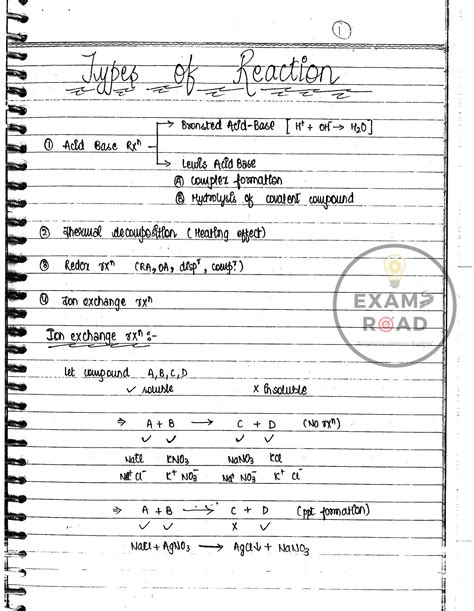 1
Types of Reaction
① Acid Base Rxⁿ
→ Bronsted Acid-Base [H⁺ + OH⁻ → H₂O]
→ Lewis Acid Base
Ⓐ Complex formation
Ⓑ Hydrolysis of covalent compound
② Thermal decomposition (Heating effect)
③ Redox rxⁿ (RA, OA,
④ Ion exchange rxⁿ
EXAMS
ROAD
Ion exchange rxⁿ :-
let compound A, B, C, D
✓ soluble X insoluble
⇒ A + B → C + D (No rxⁿ)
✓ ✓ ✓ ✓
NaCl KNO₃ NaNO₃ KCl
Na⁺ Cl⁻ K⁺ NO₃⁻ Na⁺ NO₃⁻ K⁺ Cl⁻
⇒ A + B → C + D (ppt. formation)
✓ ✓ X ✓
NaCl + AgNO₃ → AgCl↓ + NaNO₃